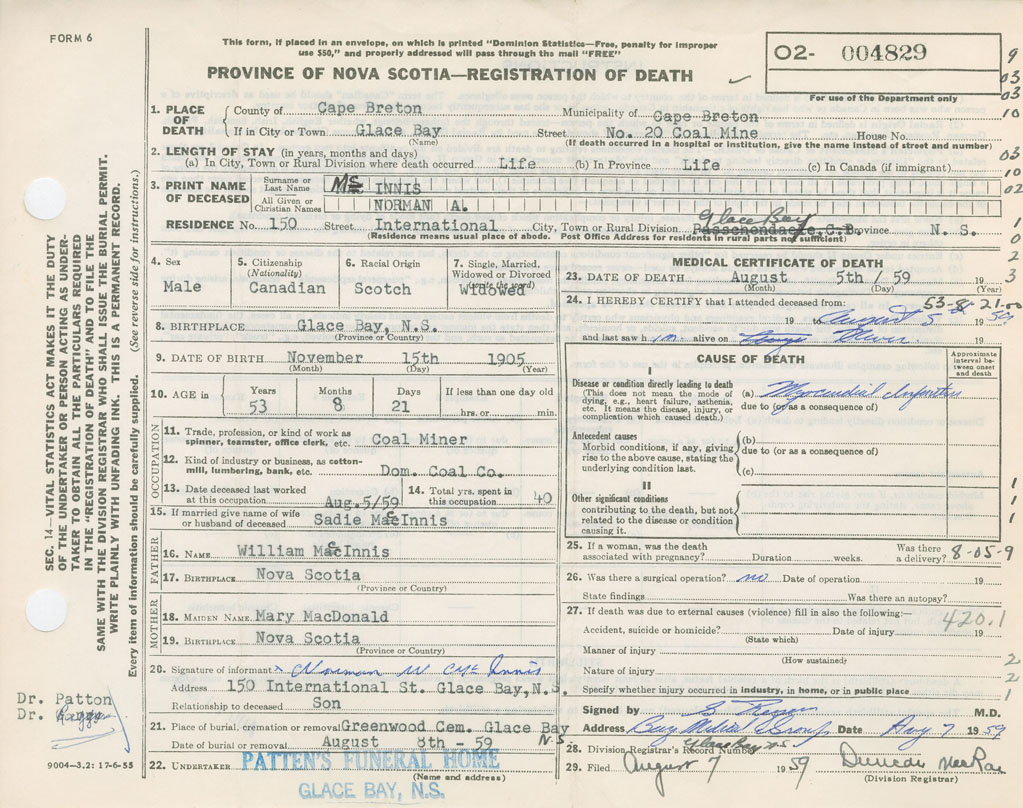 FORM 6
This form, if placed in an envelope, on which is printed "Dominion Statistics—Free, penalty for improper
use $50," and properly addressed will pass through the mail "FREE"
PROVINCE OF NOVA SCOTIA—REGISTRATION OF DEATH
02- 004829
For use of the Department only
9
03
03
10
03
10
02
1
0
3
1. PLACE OF DEATH
County of Cape Breton Municipality of Cape Breton
If in City or Town Glace Bay Street No. 20 Coal Mine House No.
(Name) (If death occurred in a hospital or institution, give the name instead of street and number)
2. LENGTH OF STAY (in years, months and days)
(a) In City, Town or Rural Division where death occurred Life (b) In Province Life (c) In Canada (if immigrant)
3. PRINT NAME OF DECEASED
Surname or Last Name Mc INNIS
All Given or Christian Names NORMAN A.
RESIDENCE No. 150 Street International City, Town or Rural Division Glace Bay Passchendaele, C.B. Province N. S.
(Residence means usual place of abode. Post Office Address for residents in rural parts not sufficient)
4. Sex
Male
5. Citizenship
(Nationality)
Canadian
6. Racial Origin
Scotch
7. Single, Married,
Widowed or Divorced
(write the word)
Widowed
8. BIRTHPLACE Glace Bay, N.S.
(Province or Country)
9. DATE OF BIRTH November 15th 1905
(Month) (Day) (Year)
10. AGE in
Years Months Days If less than one day old
53 8 21 hrs. or min.
OCCUPATION
11. Trade, profession, or kind of work as
spinner, teamster, office clerk, etc. Coal Miner
12. Kind of industry or business, as cotton-
mill, lumbering, bank, etc. Dom. Coal Co.
13. Date deceased last worked
at this occupation Aug.5/59
14. Total yrs. spent in
this occupation 40
15. If married give name of wife
or husband of deceased Sadie MacInnis
FATHER
16. NAME William MacInnis
17. BIRTHPLACE Nova Scotia
(Province or Country)
MOTHER
18. MAIDEN NAME Mary MacDonald
19. BIRTHPLACE Nova Scotia
(Province or Country)
20. Signature of informant x Norman W McInnis
Address 150 International St. Glace Bay, N.S.
Relationship to deceased Son
21. Place of burial, cremation or removal Greenwood Cem. Glace Bay
N.S
Date of burial or removal August 8th - 59
22. UNDERTAKER PATTEN'S FUNERAL HOME
(Name and address)
GLACE BAY, N.S.
MEDICAL CERTIFICATE OF DEATH
23. DATE OF DEATH August 5th / 59
(Month) (Day) (Year)
24. I HEREBY CERTIFY that I attended deceased from: 53-8-21-00
19 to August 5th 19 59
and last saw him alive on 19
CAUSE OF DEATH
Approximate
interval be-
tween onset
and death
I
Disease or condition directly leading to death
(This does not mean the mode of
dying, e.g., heart failure, asthenia,
etc. It means the disease, injury, or
complication which caused death.)
(a) Myocardial Infarction
due to (or as a consequence of)
Antecedent causes
Morbid conditions, if any, giving
rise to the above cause, stating the
underlying condition last.
(b)
due to (or as a consequence of)
(c)
II
Other significant conditions
contributing to the death, but not
related to the disease or condition
causing it.
1
1
1
25. If a woman, was the death
associated with pregnancy? Duration weeks. Was there
a delivery? 8-05-9
26. Was there a surgical operation? no Date of operation 19
State findings Was there an autopsy?
27. If death was due to external causes (violence) fill in also the following:—
420.1
Accident, suicide or homicide? Date of injury 19
(State which)
Manner of injury 2
(How sustained)
Nature of injury 2
Specify whether injury occurred in industry, in home, or in public place 1
Signed by M.D.
Address Bay Medical Group Date Aug 7 1959
Glace Bay NS
28. Division Registrar's Record Number
29. Filed August 7 1959 Duncan MacRae
(Division Registrar)
SEC. 14—VITAL STATISTICS ACT MAKES IT THE DUTY
OF THE UNDERTAKER OR PERSON ACTING AS UNDER-
TAKER TO OBTAIN ALL THE PARTICULARS REQUIRED
IN THE "REGISTRATION OF DEATH" AND TO FILE THE
SAME WITH THE DIVISION REGISTRAR WHO SHALL ISSUE THE BURIAL PERMIT.
WRITE PLAINLY WITH UNFADING INK. THIS IS A PERMANENT RECORD.
Every item of information should be carefully supplied. (See reverse side for instructions.)
Dr. Patton
Dr.
9004-3.2: 17-6-55